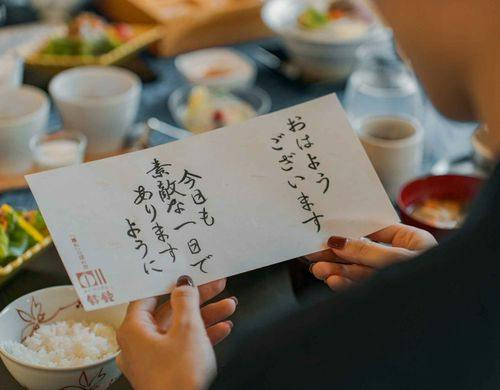 おはよう
ございます
今日も
素敵な一日で
あります
ように